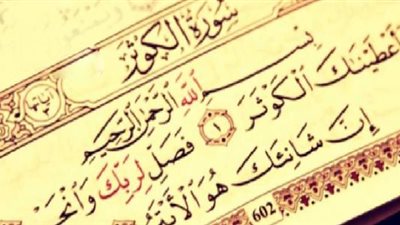 سورة الكوثر
آياتها ٣
بسم الله الرحمن الرحيم
أعطيناك الكوثر ١ فصل لربك وانحر
إن شانئك هو الأبتر
602